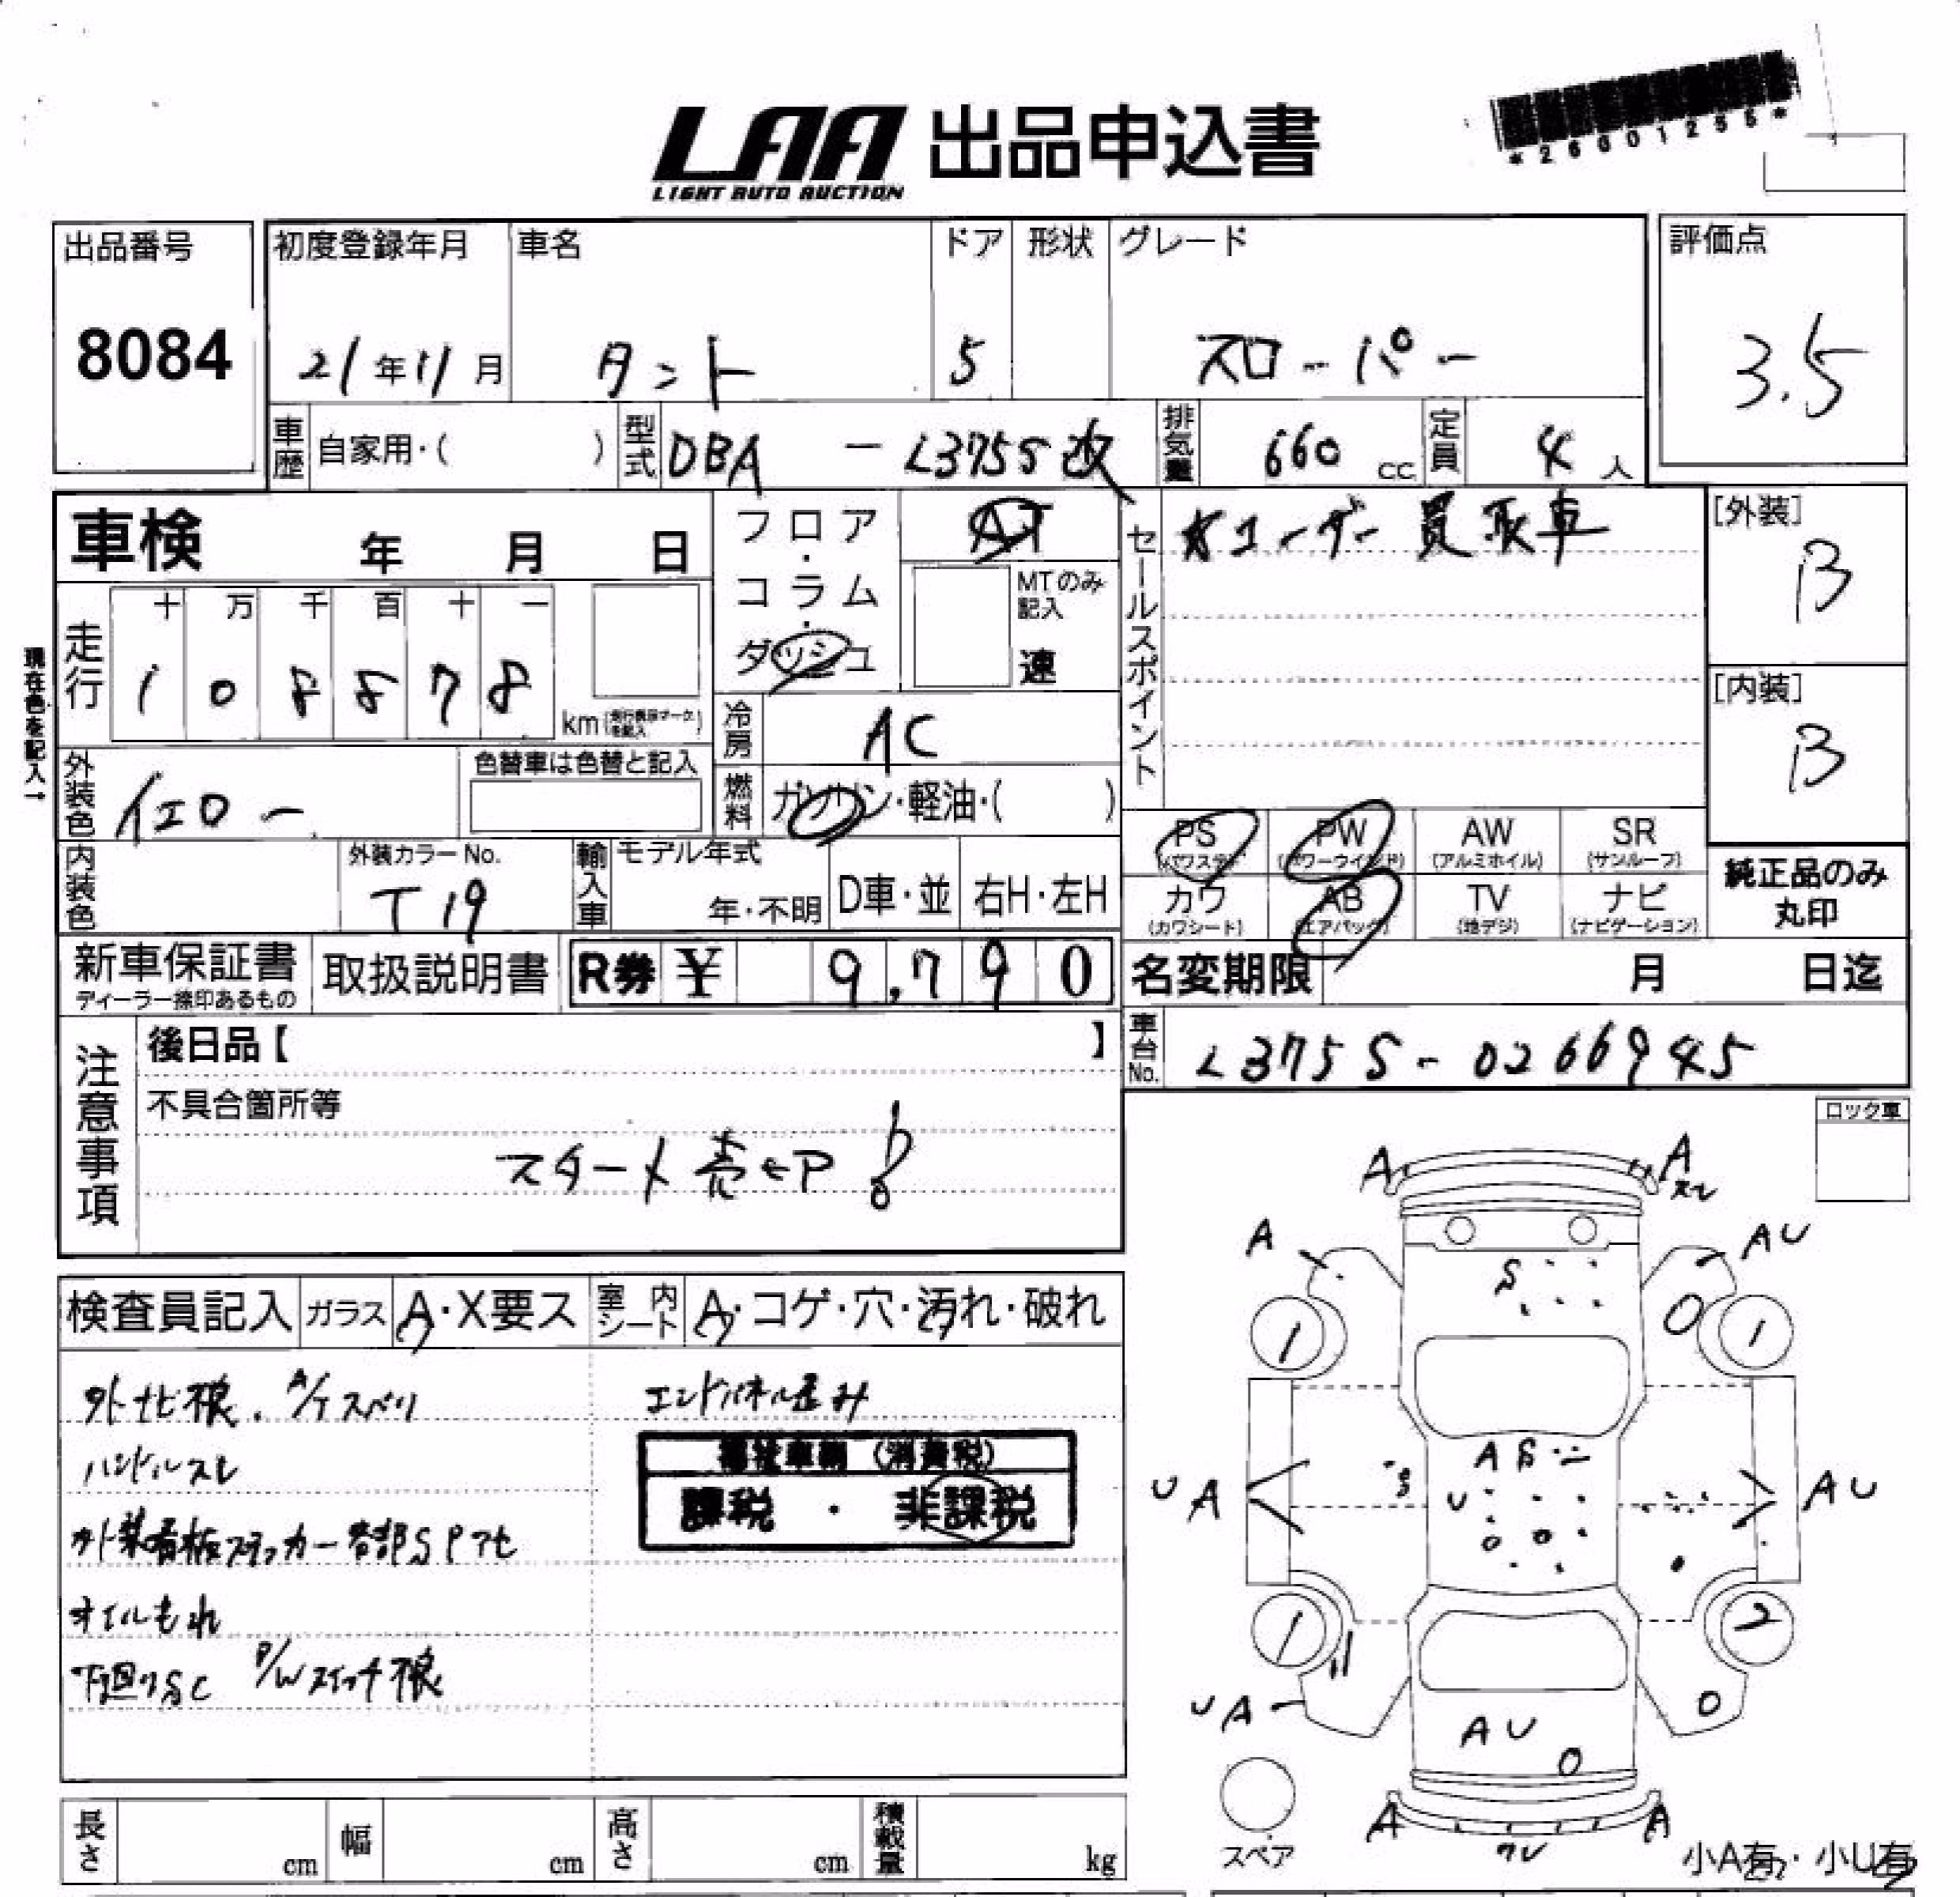 *26001255*
LAA 出品申込書
LIGHT AUTO AUCTION
出品番号
8084
初度登録年月
21年11月
車名
タント
ドア
5
形状
グレード
スローパー
評価点
3.5
車歴 自家用・( )
型式 DBA - L375S改
排気量 660 cc
定員 4人
車検 年 月 日
フロア・コラム・ダッシュ
AT
MTのみ記入
速
セールスポイント
★ユーザー買取車
[外装]
B
[内装]
B
現在色を記入→
走行
十 万 千 百 十 一
1 0 8 8 7 8
km
冷房 AC
燃料 ガソリン・軽油・( )
外装色 イエロー
色替車は色替と記入
内装色
外装カラーNo.
T19
輸入車
モデル年式
年・不明
D車・並
右H・左H
PS (パワステ)
PW (パワーウインド)
AW (アルミホイル)
SR (サンルーフ)
カワ (カワシート)
AB (エアバッグ)
TV (地デジ)
ナビ (ナビゲーション)
純正品のみ
丸印
新車保証書
ディーラー捺印あるもの
取扱説明書
R券 ¥ 9,790
名変期限 月 日迄
注意事項
後日品【 】
不具合箇所等
スタート売切
車台No. L375S-0266945
ロック車
検査員記入
ガラス A・X要ス
室内シート A・コゲ・穴・汚れ・破れ
外ナビ痕. A/Tスベリ
ハンドルスレ
外装看板ステッカー
オイルもれ
下廻りSC P/Wスイッチ痕
エンドパネル歪み
福祉車輌(消費税)
課税 ・ 非課税
A
A
スレ
A
AU
S
O
1
1
A S
U
UA
AU
1
2
UA
O
AU
O
A
ワレ
A
スペア
小A有・小U有
長さ cm
幅 cm
高さ cm
積載量 kg